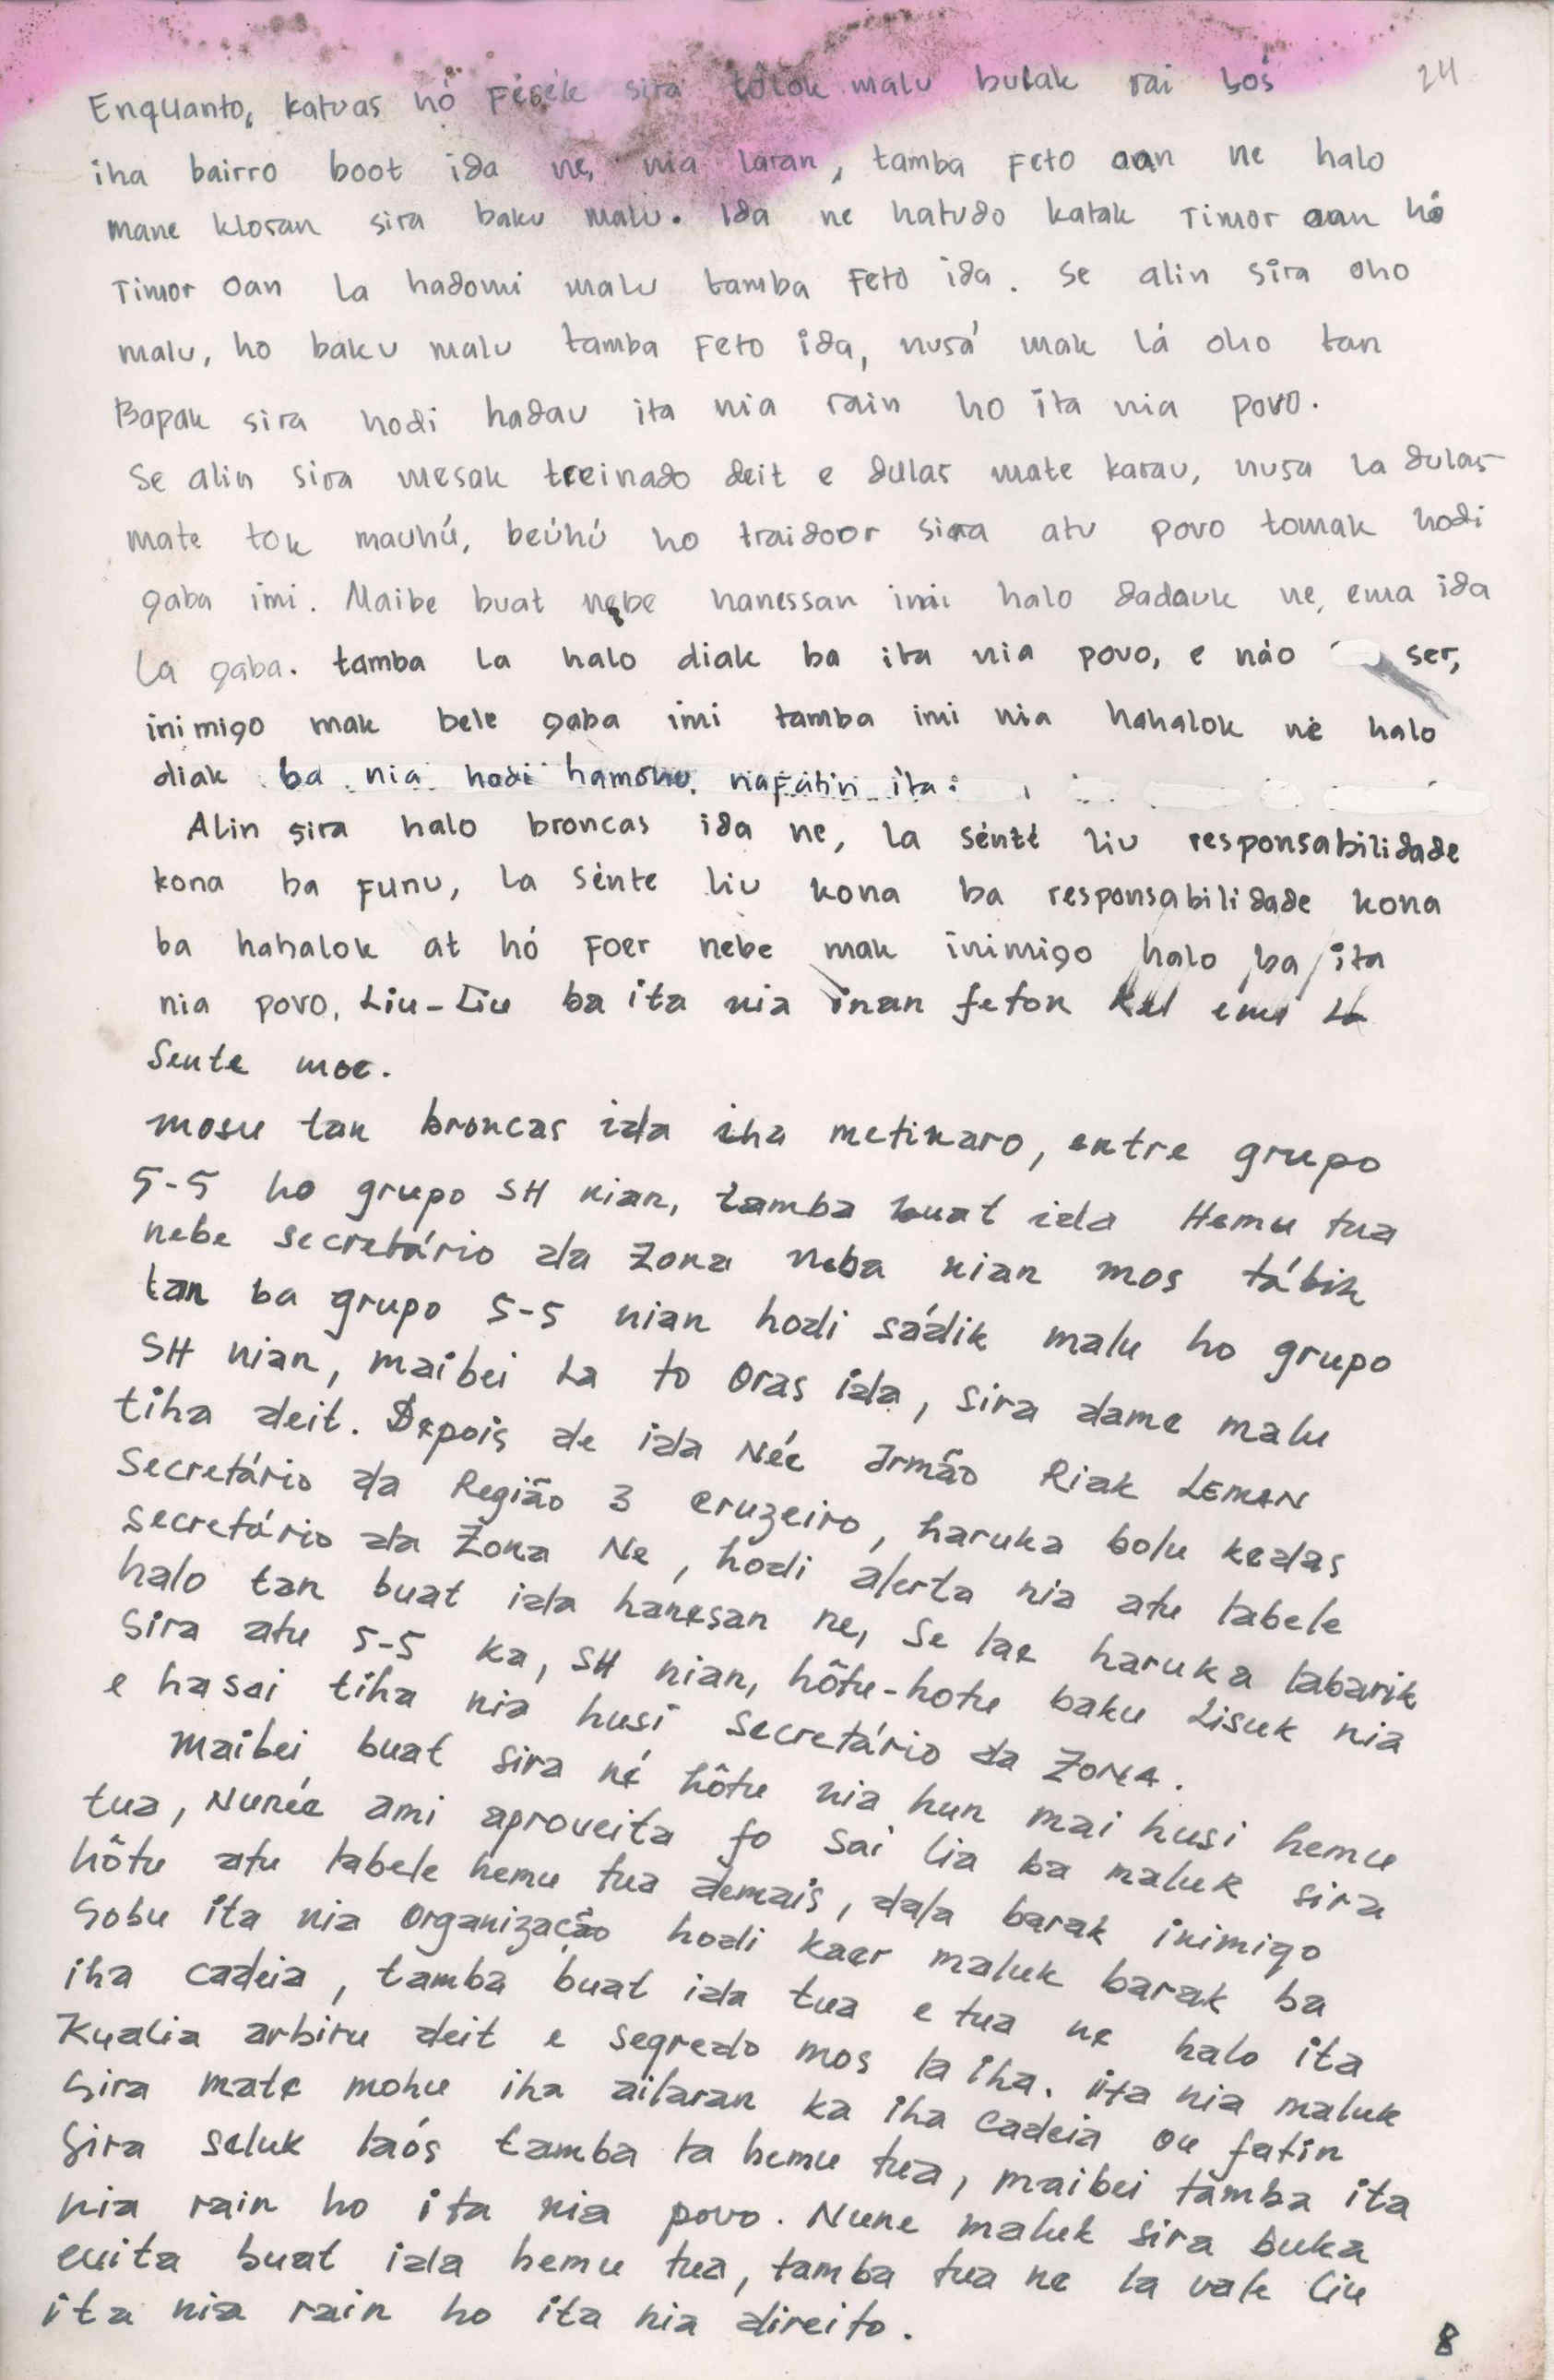 24
Enquanto, katuas hó Fésék sira tólok malu bulak rai boś
iha bairro boot ida ne, nia laran, tamba Feto oan ne halo
mane klosan sira baku malu. Ida ne hatudo katak Timor oan hó
Timor oan la hadomi malu tamba Feto ida. Se alin sira oho
malu, ho baku malu tamba Feto ida, nusá mak lá oho tan
Bapak sira hodi hadau ita nia rain ho ita nia povo.
Se alin sira mesak treinado deit e dulas mate karau, nusa la dulas
mate tok mauhú, beúhú ho traidoor sira atu povo tomak hodi
gaba imi. Maibe buat nebe hanessan imi halo dadauk ne, ema ida
la gaba. tamba la halo diak ba ita nia povo, e não ser,
inimigo mak bele gaba imi tamba imi nia hahalok né halo
diak ba nia hodi hamohu nafatin ita.
Alin sira halo broncas ida ne, la sénté liu responsabilidade
kona ba Funu, la sénte liu kona ba responsabilidade kona
ba hahalok at hó Foer nebe mak inimigo halo ba ita
nia povo, Liu-Liu ba ita nia inan feton
Sente moe.
mosu tan broncas ida iha metinaro, entre grupo
5-5 ho grupo SH nian, tamba buat ida Hemu tua
nebe secretário da Zona neba nian mos tábik
tan ba grupo 5-5 nian hodi sádik malu ho grupo
SH nian, maibei La to Oras ida, sira dame malu
tiha deit. Depois de ida Née Irmão Riak LEMAN
Secretário da Região 3 cruzeiro, haruka bolu kedas
secretário da Zona Ne, hodi alerta nia atu labele
halo tan buat ida hanesan ne, se lae haruka labarik
sira atu 5-5 ka, SH nian, hôtu-hotu baku Lisuk nia
e hasai tiha nia husi secretário da Zona.
maibei buat sira né hôtu nia hun mai husi hemu
tua, Nunée ami aproveita fo sai lia ba maluk sira
hôtu atu labele hemu tua demais, dala barak inimigo
Sobu ita nia Organização hodi kaer maluk barak ba
iha cadeia, tamba buat ida tua e tua ne halo ita
Kualia arbiru deit e segredo mos la iha. ita nia maluk
sira mate mohu iha ailaran ka iha cadeia ou fatin
sira seluk laós tamba la hemu tua, maibei tamba ita
nia rain ho ita nia povo. Nune maluk sira buka
evita buat ida hemu tua, tamba tua ne la vale liu
ita nia rain ho ita nia direito.
8